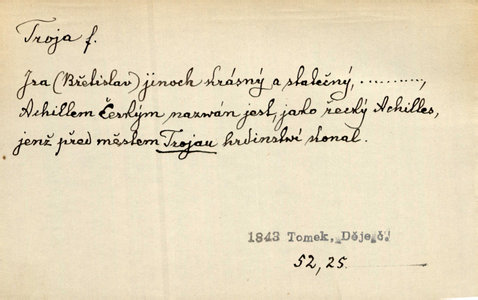 Troja f.
Jsa (Břetislav) jinoch krásný a statečný, ..........,
Achillem Českým nazwán jest, jako řecký Achilles,
jenž před městem Trojau hrdinstwí konal.
1843 Tomek, Děje č.
52, 25.